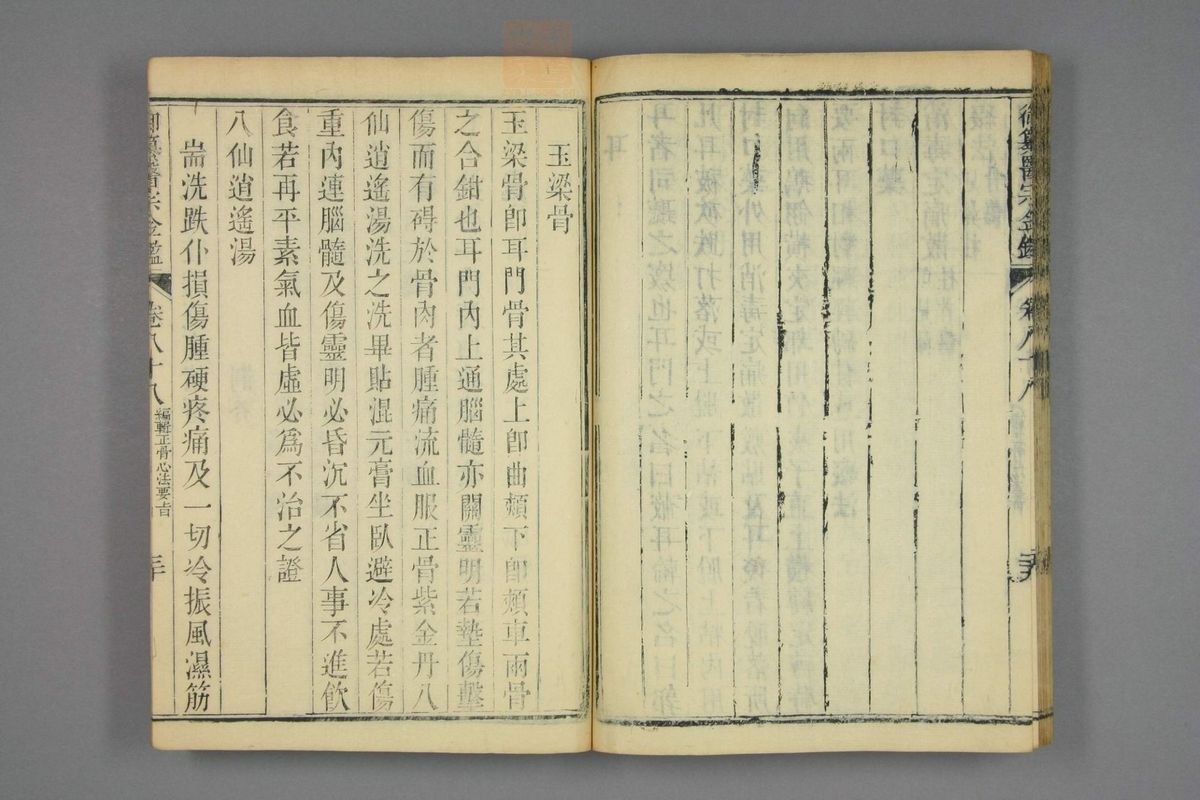 御纂醫宗金鑑 卷八十八
玉梁骨
玉梁骨卽耳門骨其處上卽曲頰下卽頰車兩骨
之合鉗也耳門內上通腦髓亦關靈明若墊傷鑿
傷而有碍於骨肉者腫痛流血服正骨紫金丹八
仙逍遙湯洗之洗畢貼混元膏坐臥避冷處若傷
重內連腦髓及傷靈明必昏沉不省人事不進飮
食若再平素氣血皆虛必爲不治之證
八仙逍遙湯
耑洗跌仆損傷腫硬疼痛及一切冷振風濕筋
御纂醫宗金鑑 卷八十八 編輯正骨心法要旨 三十